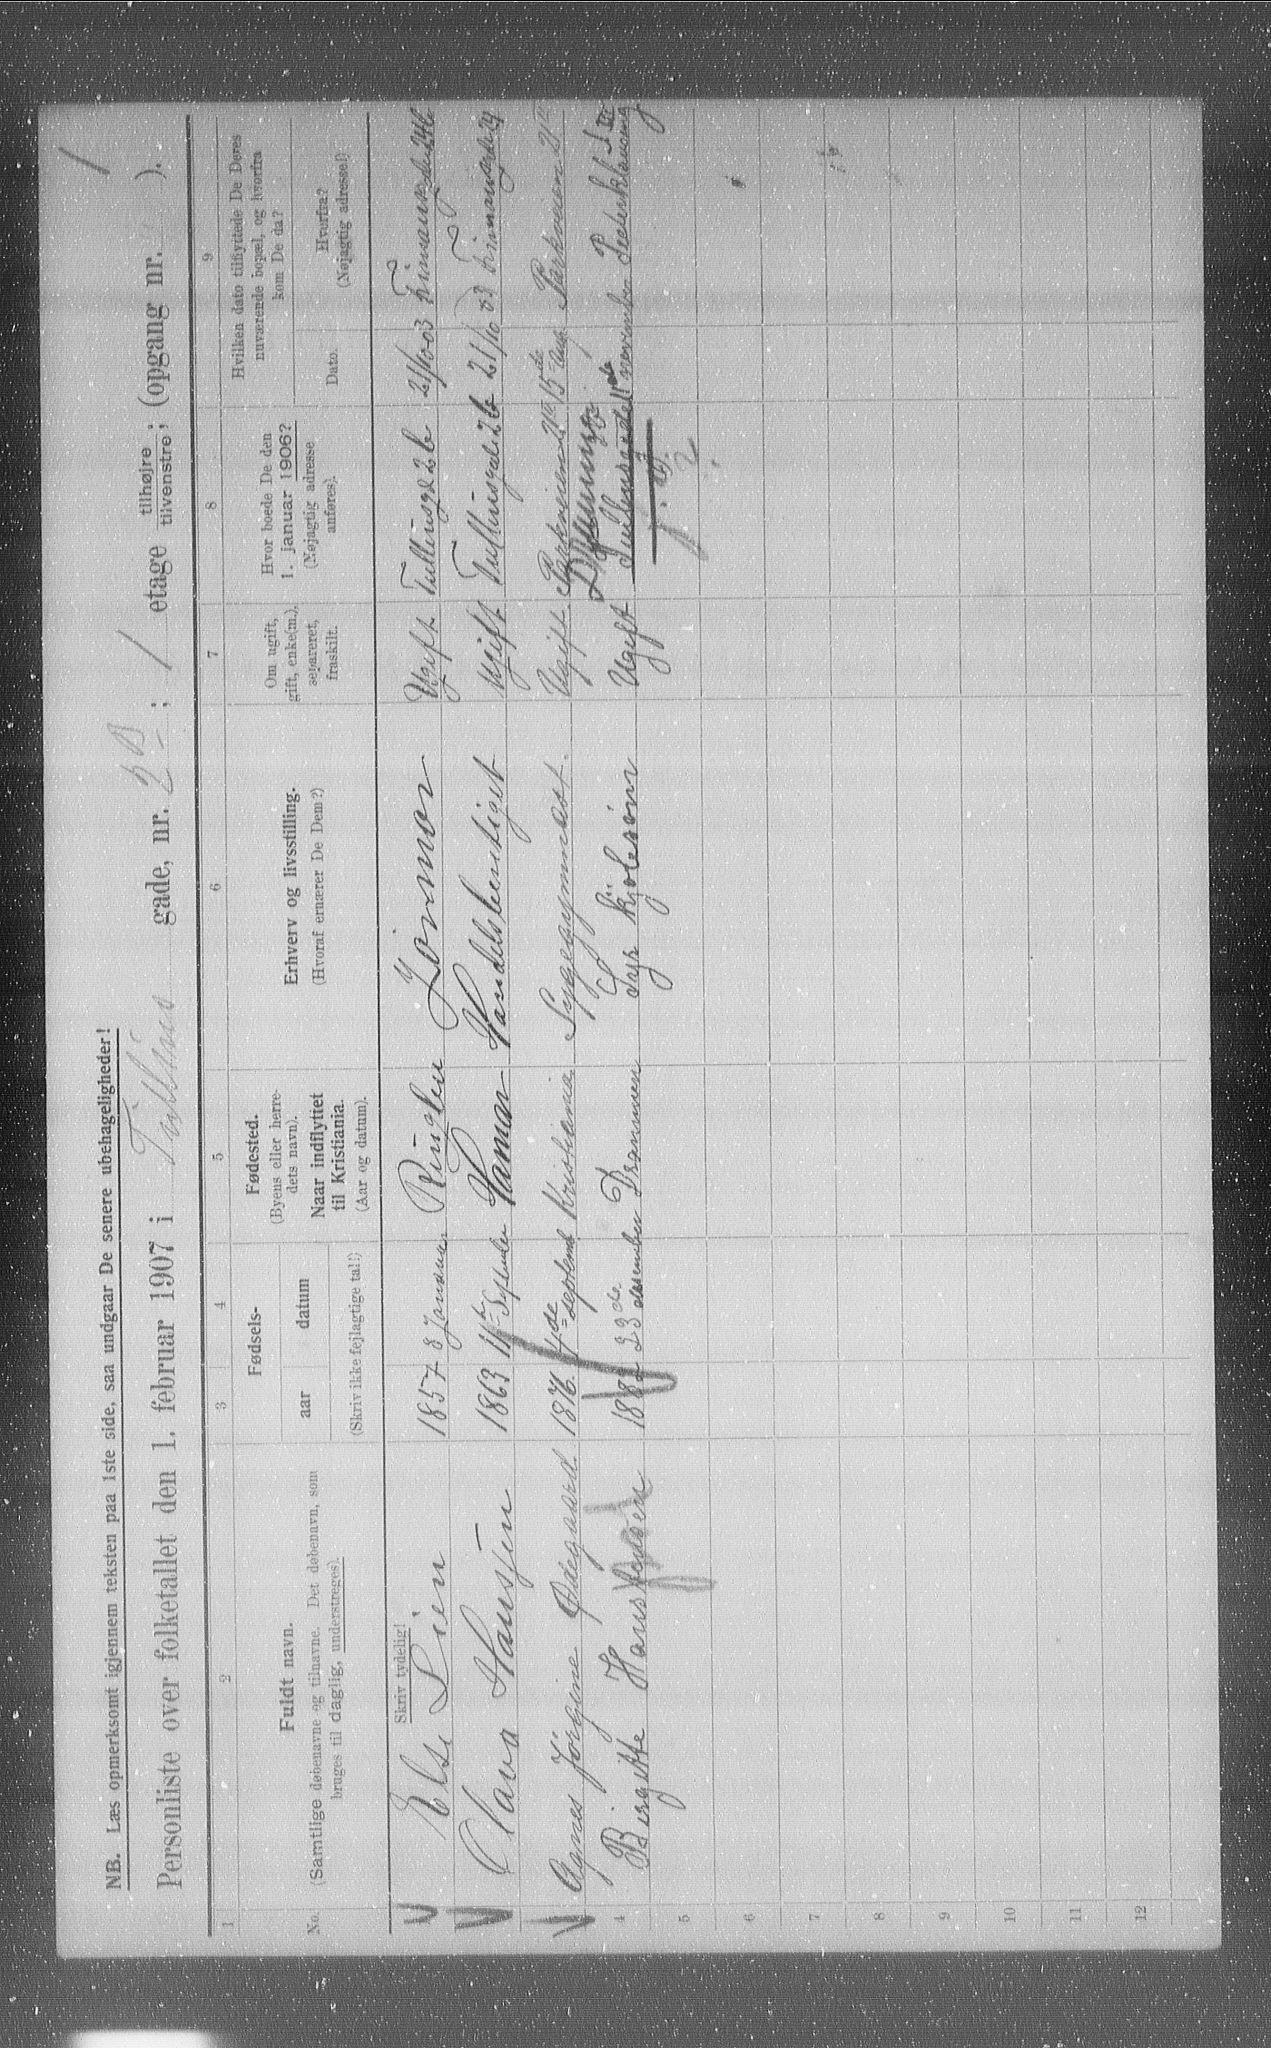 NB. Læs opmerksomt igjennem teksten paa 1ste side, saa undgaar De senere ubehageligheder!
1
Personliste over folketallet den 1. februar 1907 i Tullins gade, nr. 2 B; 1 etage tilhøjre tilvenstre; (opgang nr. ).
1
2
3
4
5
6
7
8
9
No.
Fuldt navn.
(Samtlige døbenavne og tilnavne. Det døbenavn, som
bruges til daglig, understreges).
Fødsels-
aar
datum
(Skriv ikke fejlagtige tal!)
Fødested.
(Byens eller herre-
dets navn).
Naar indflyttet
til Kristiania.
(Aar og datum).
Erhverv og livsstilling.
(Hvoraf ernærer De Dem?)
Om ugift,
gift, enke(m.),
separeret,
fraskilt.
Hvor boede De den
1. januar 1906?
(Nøjagtig adresse
anføres).
Hvilken dato tilflyttede De Deres
nuværende bopæl, og hvorfra
kom De da?
Dato.
Hvorfra?
(Nøjagtig adresse!)
Skriv tydelig!
Else Lien 1857 8 Januar Ringleu Jormor Ugift Tullinsgd 2 b 21/10 03
Olava Hansen 1863 11te September Hamar Handelsbestyret Ugift Tullinsgade 2 b 21/10 03
3 Agnes Jörgine Ødegaard 1876. 4de septemb Kristiania Sygegymnast. Ugift. Parkveien 21 15de aug. Parkveien 21
4 Birgitte Hansen 1882 23de desember Drammen Syr kjolesöm Ugift Drammen november
?
5
6
7
8
9
10
11
12